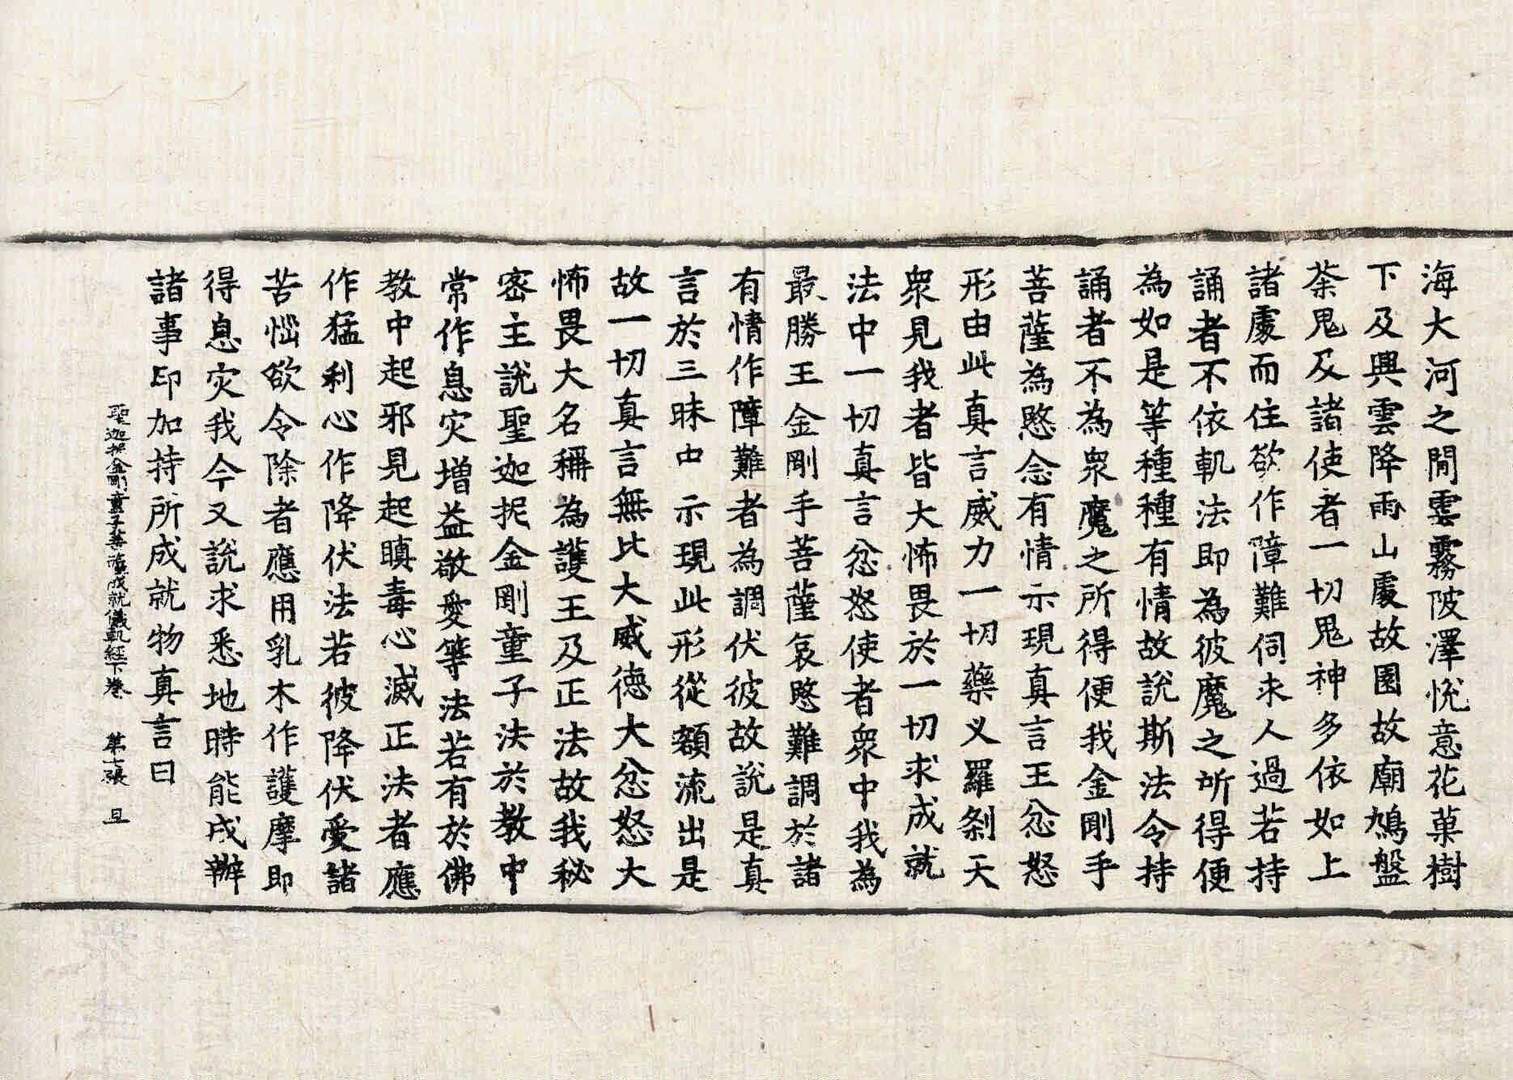 海大河之間雲霧陂澤悅意花菓樹
下及興雲降雨山處故園故廟鳩盤
茶鬼及諸使者一切鬼神多依如上
諸處而住欲作障難伺求人過若持
誦者不依軌法即為彼魔之所得便
為如是等種種有情故說斯法令持
誦者不為衆魔之所得便我金剛手
菩薩為愍念有情示現真言王忿怒
形由此真言威力一切藥义羅剎天
衆見我者皆大怖畏於一切求成就
法中一切真言忿怒使者衆中我為
最勝王金剛手菩薩哀愍難調於諸
有情作障難者為調伏彼故說是真
言於三昧中示現此形從額流出是
故一切真言無比大威德大忿怒大
怖畏大名稱為護王及正法故我秘
密主說聖迦抳金剛童子法於教中
常作息灾增益敬愛等法若有於佛
教中起邪見起瞋毒心滅正法者應
作猛利心作降伏法若彼降伏憂諸
苦惱欲令除者應用乳木作護摩即
得息灾我今又說求悉地時能成辦
諸事印加持所成就物真言曰
聖迦抳金剛童子菩薩成就儀軌經下卷 第七張 旦